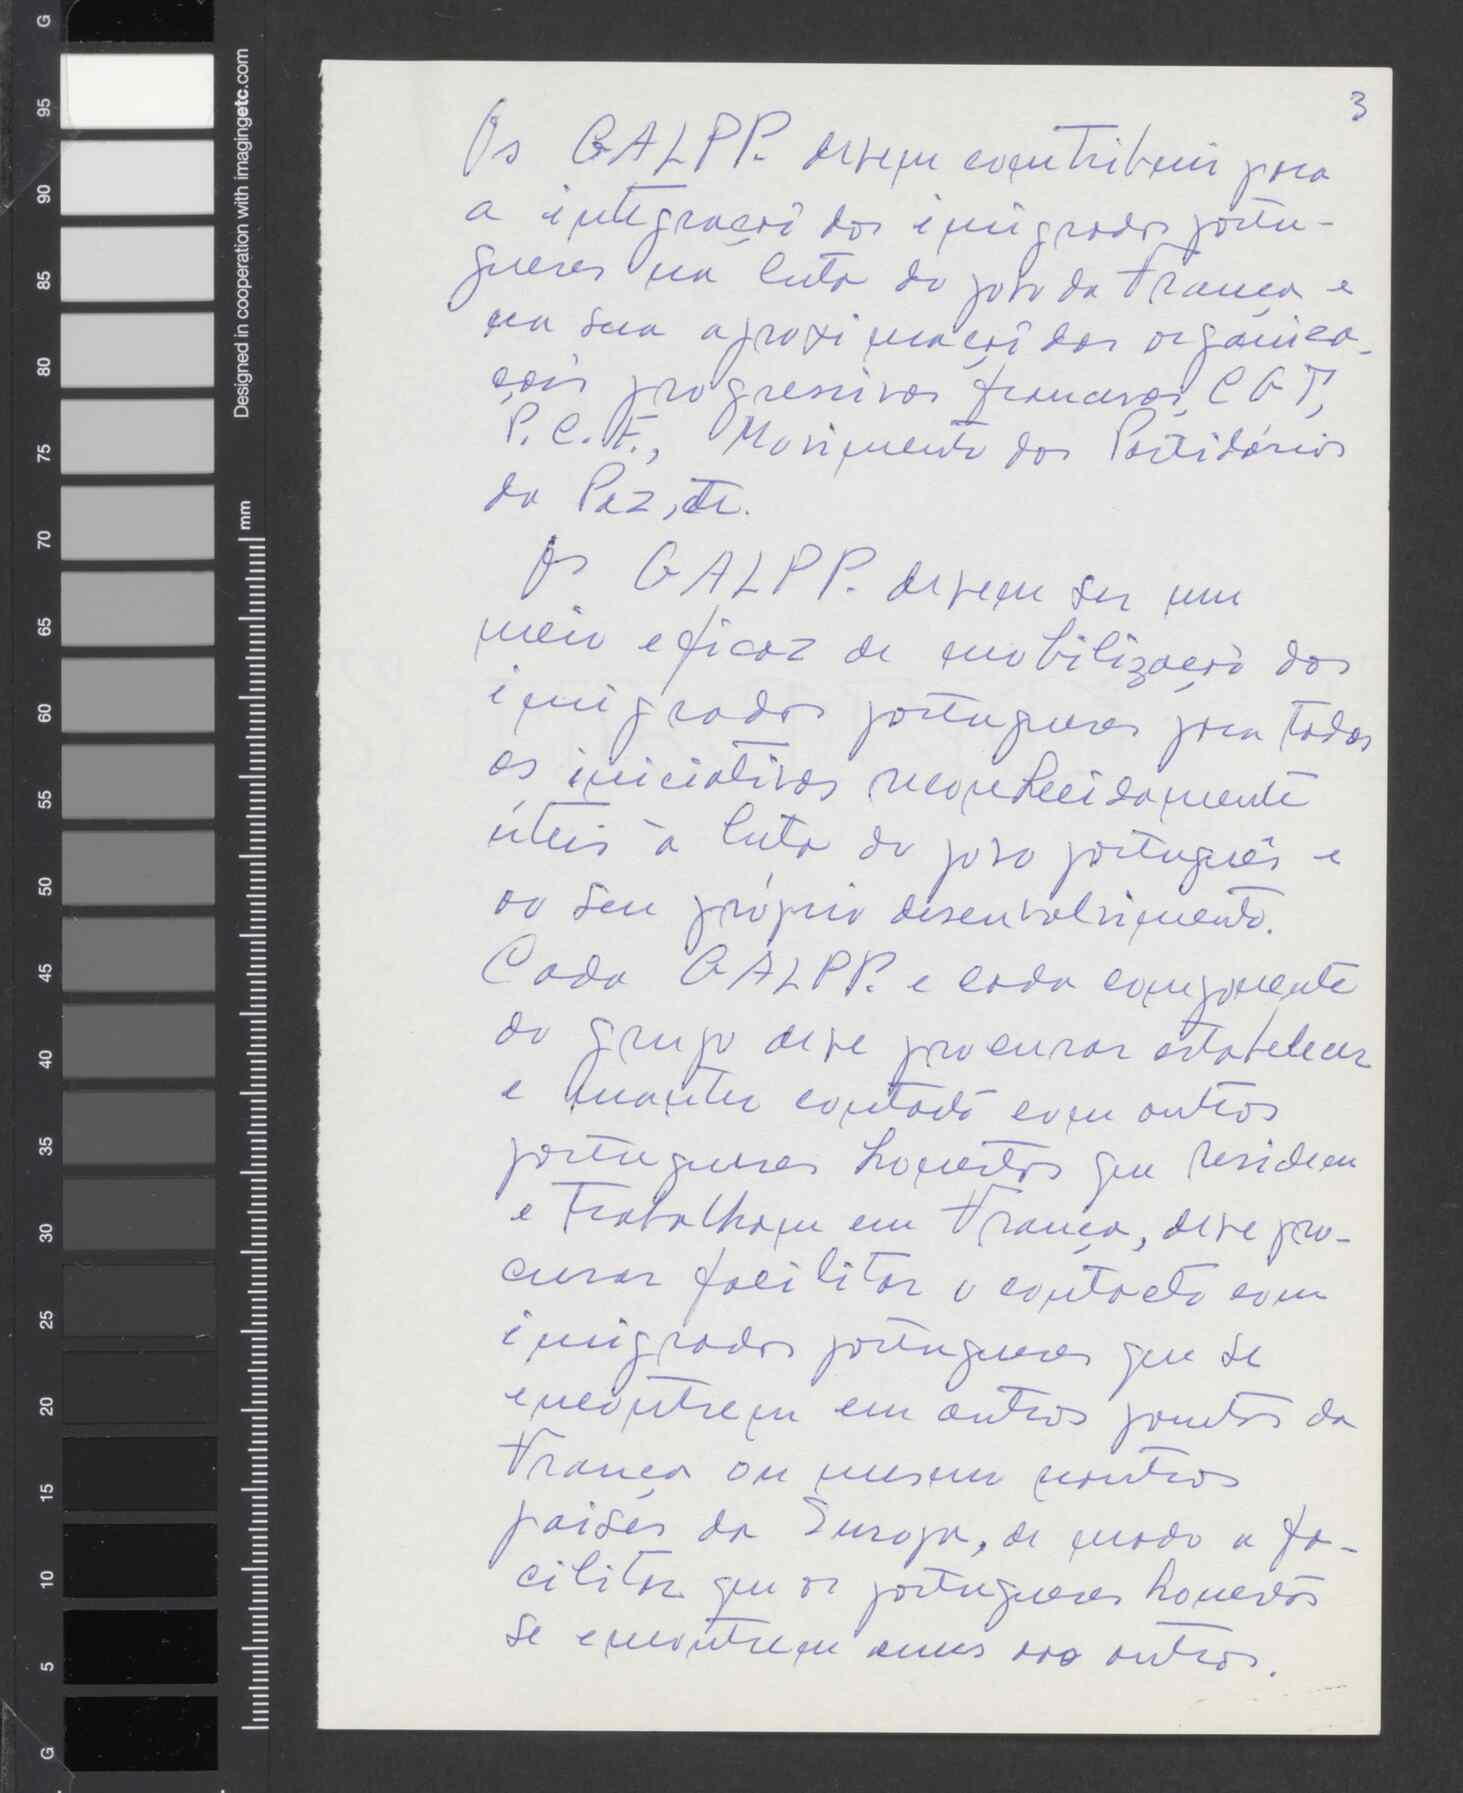 3
Os GALPP. devem contribuir para
a integração dos imigrados portu-
gueses na luta do povo da França e
na sua aproximação das organiza-
ções progressivas francesas, CGT,
P.C.F., Movimento dos Partidários
da Paz, etc.
Os GALPP. devem ser um
meio eficaz de mobilização dos
imigrados portugueses para todas
as iniciativas reconhecidamente
úteis à luta do povo português e
ao seu próprio desenvolvimento.
Cada GALPP. e cada componente
do grupo deve procurar estabelecer
e manter contacto com outros
portugueses honestos que residem
e trabalham em França, deve pro-
curar facilitar o contacto com
imigrados portugueses que se
encontrem em outros pontos da
França ou mesmo noutros
países da Europa, de modo a fa-
cilitar que os portugueses honestos
se encontrem unus aos outros.
Designed in cooperation with imagingetc.com
mm
G
95
90
85
80
75
70
65
60
55
50
45
40
35
30
25
20
15
10
5
G